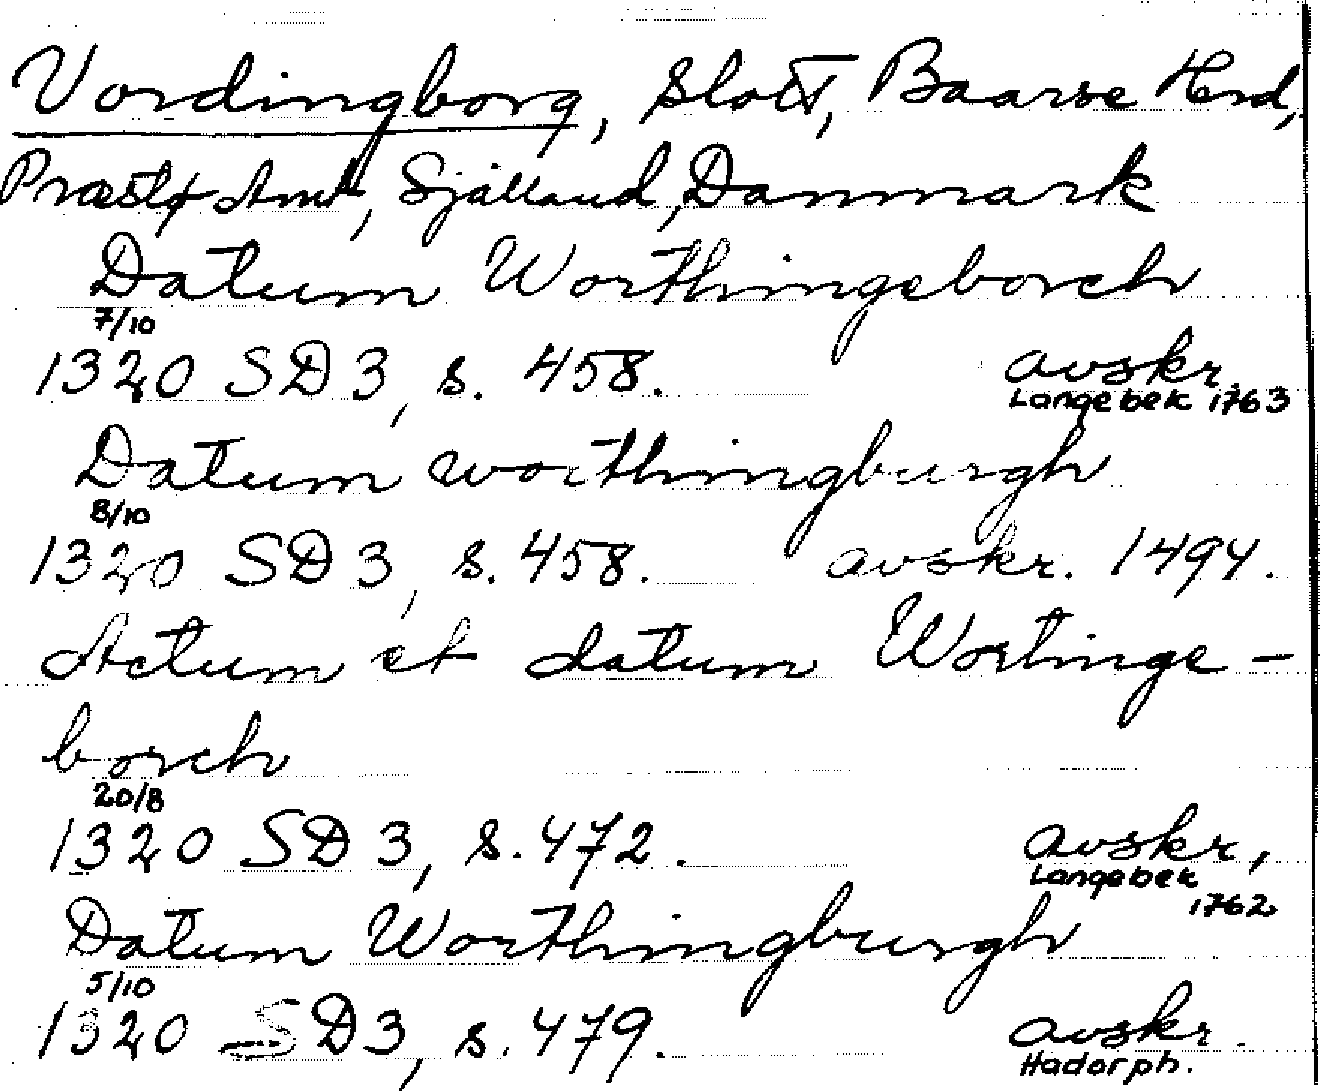 Vordingborg, slott, Baarse Herd,
Præstø Amt, Sjælland, Danmark
Datum Worthingeborch
7/10
1320 SD 3, s. 458. avskr.
Langebek 1763
Datum worthingburgh
8/10
1320 SD 3, s. 458. avskr. 1494.
Actum et datum Wortinge-
borch
20/8
1320 SD 3, s. 472. avskr,
Langebek
1762
Datum Worthingburgh
5/10
1320 SD 3, s. 479. avskr.
Hadorph.